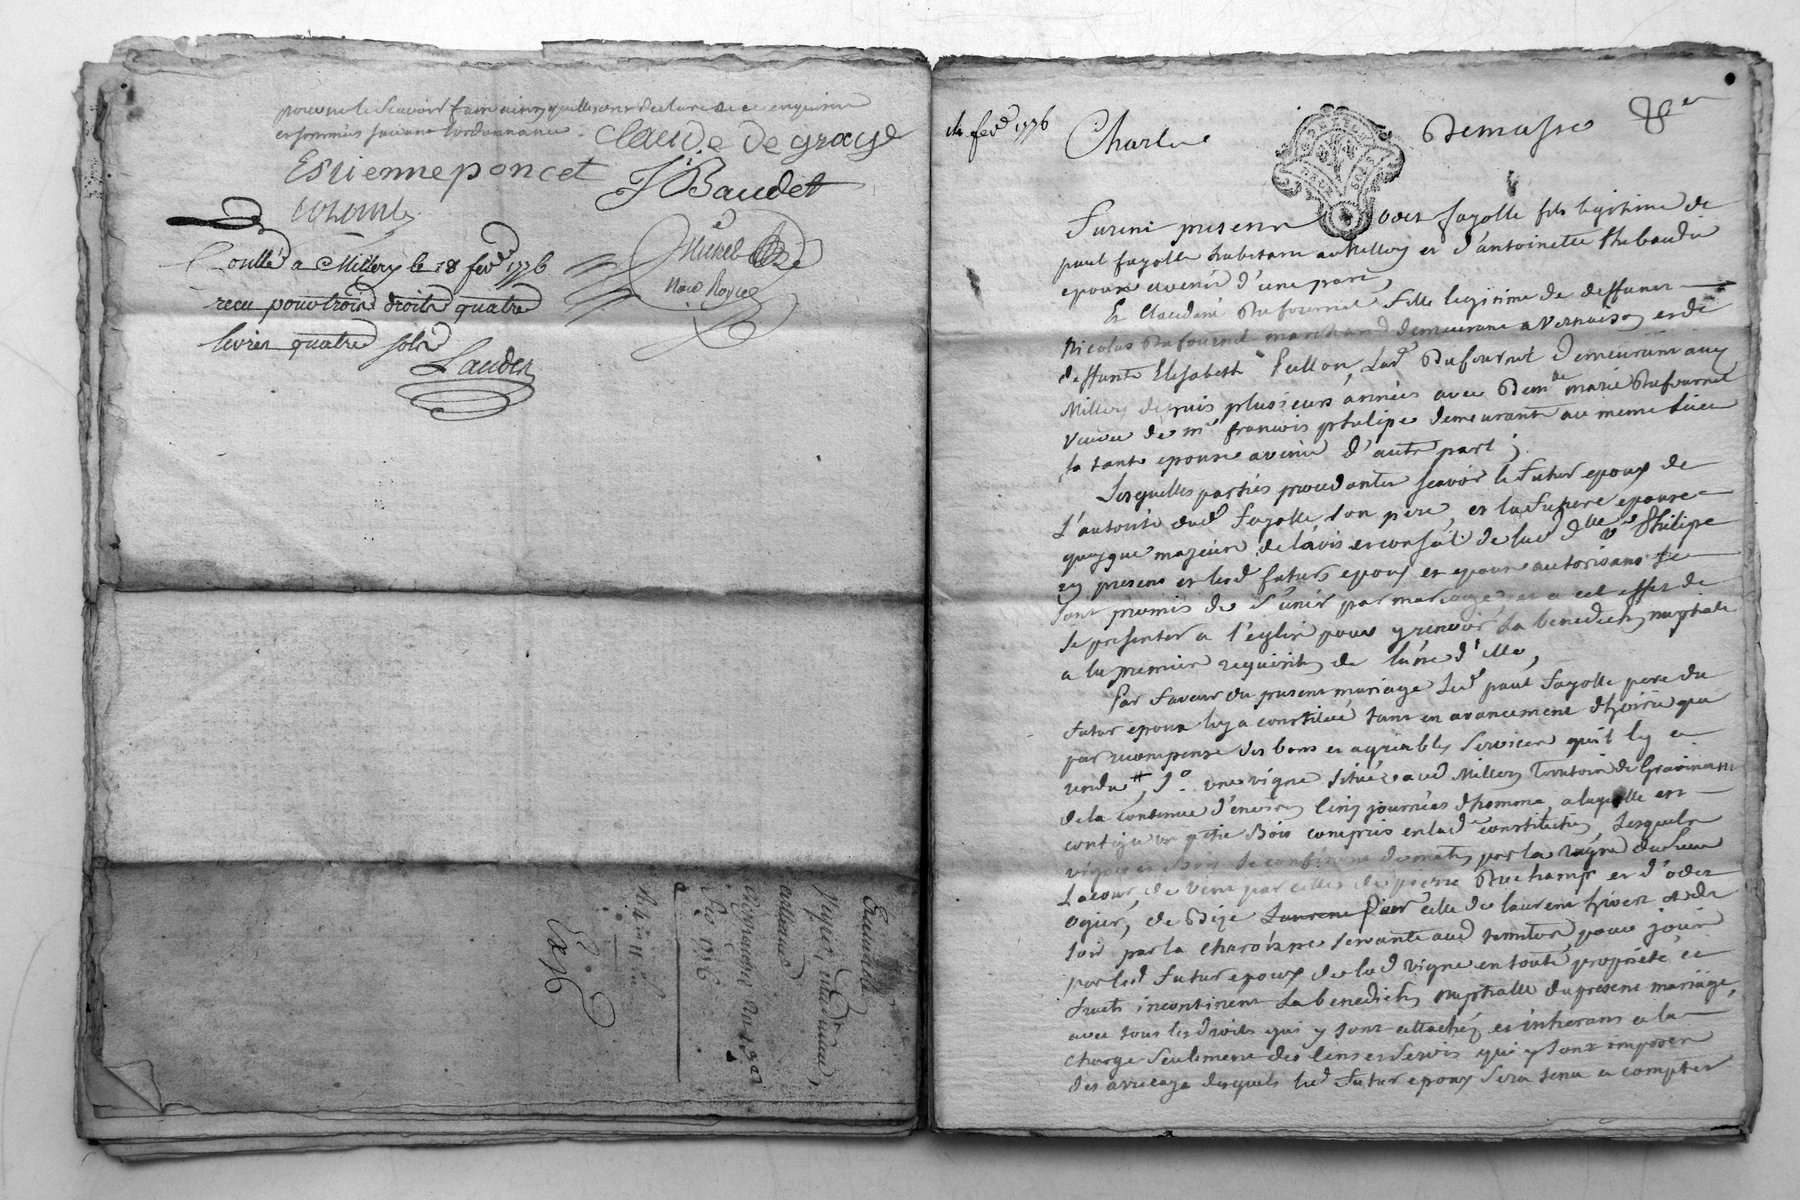 pour ne le scavoir faire ainsy quelles ont declaré de ce enquises
et sommés suivant l'ordonnance.
Claude degraye
Estienne poncet
JBaudet
Colomb
Michel
Nod Royce
Conllé a Millery le 18 fevd 1776
recu pour trois droits quatre
livres quatre sols
Laudeh
Enavelle
1776
Exp
14 fevd 1776
Charles
Demasso
Furent presents oder fayolle fils legitime de
paul fayolle habitant a Millery et d'antoinette thibaudie
epoux avenir d'une part,
Et Claudine Dufournel fille legitime de deffunt
Nicolas Dufournel marchand demeurant a Vernaison et de
deffunte Elisabeth Peillon, lad Dufournel demeurant aud
Millery depuis plusieurs années avec Demlle marie Dufournel
veuve de mr francois philipe demeurante au meme lieu
sa tante epouse avenir d'autre part;
Lesquelles parties procedantes scavoir le futur epoux de
L'autorité dud fayolle son pere, et la future epouse
quoyque majeure de lavis et conseil de lad dlle ve Philipe
cy presens et lesd futurs epoux et epouse autorisans se
sont promis de s'unir par mariage, et a cet effet de
se presenter a l'eglise pour y recevoir la benedictn nuptiale
a la premiere requisitn de l'une d'elle,
Par faveur du present mariage led paul fayolle pere du
futur epoux luy a constitué tant en avancement d'hoirie que
par recompense des bons et agreables services qu'il luy a
rendu, 1o. une vigne située aud Millery territoire de Gravinant
de la contenue d'environ cinq journées d'homme, a laquelle est
contigu un petit Bois compris en lad constitution, lesquels
vigne et Bois se confinent de matin par la vigne du sieur
Lacour, de vent par celles de pierre Duchamp et d'oder
ogier, de Bize par celle de laurent hivert et de
soir par la charoisne servante aud territoire, pour jouir
par led futur epoux de lad vigne en toute propriété et
fruits incontinent la benedictn nuptialle du present mariage,
avec tous les droits qui y sont attachés et inherans a la
charge seulement des cens et servis qui y sont imposés
des arrerages desquels led futur epoux sera tenu a compter